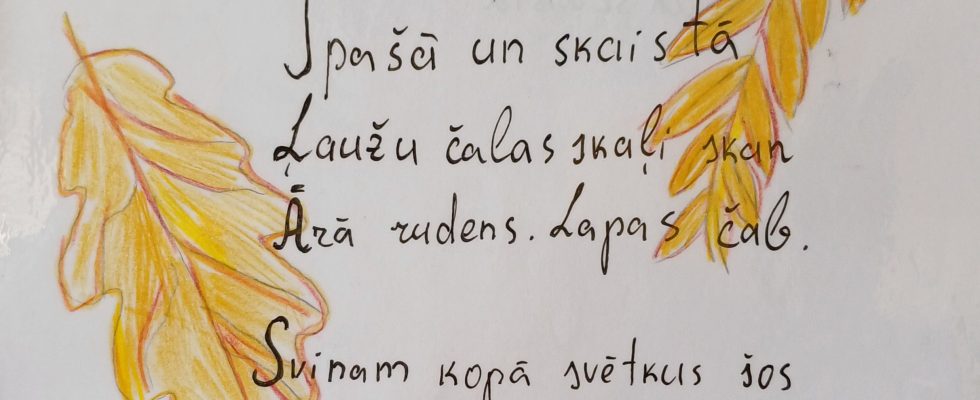 Īpašā un skaistā
Ļaužu čalas skaļi skan
Ārā rudens. Lapas čab.
Svinam kopā svētkus šos